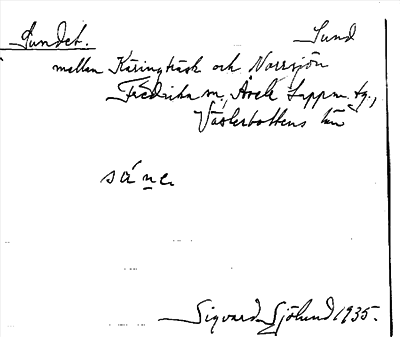 Sundet. Sund
mellan Käringträsk och Norrsjön
Fredrika sn, Åsele Lappm. tg.,
Västerbottens län
Sigvard Sjölund 1935.